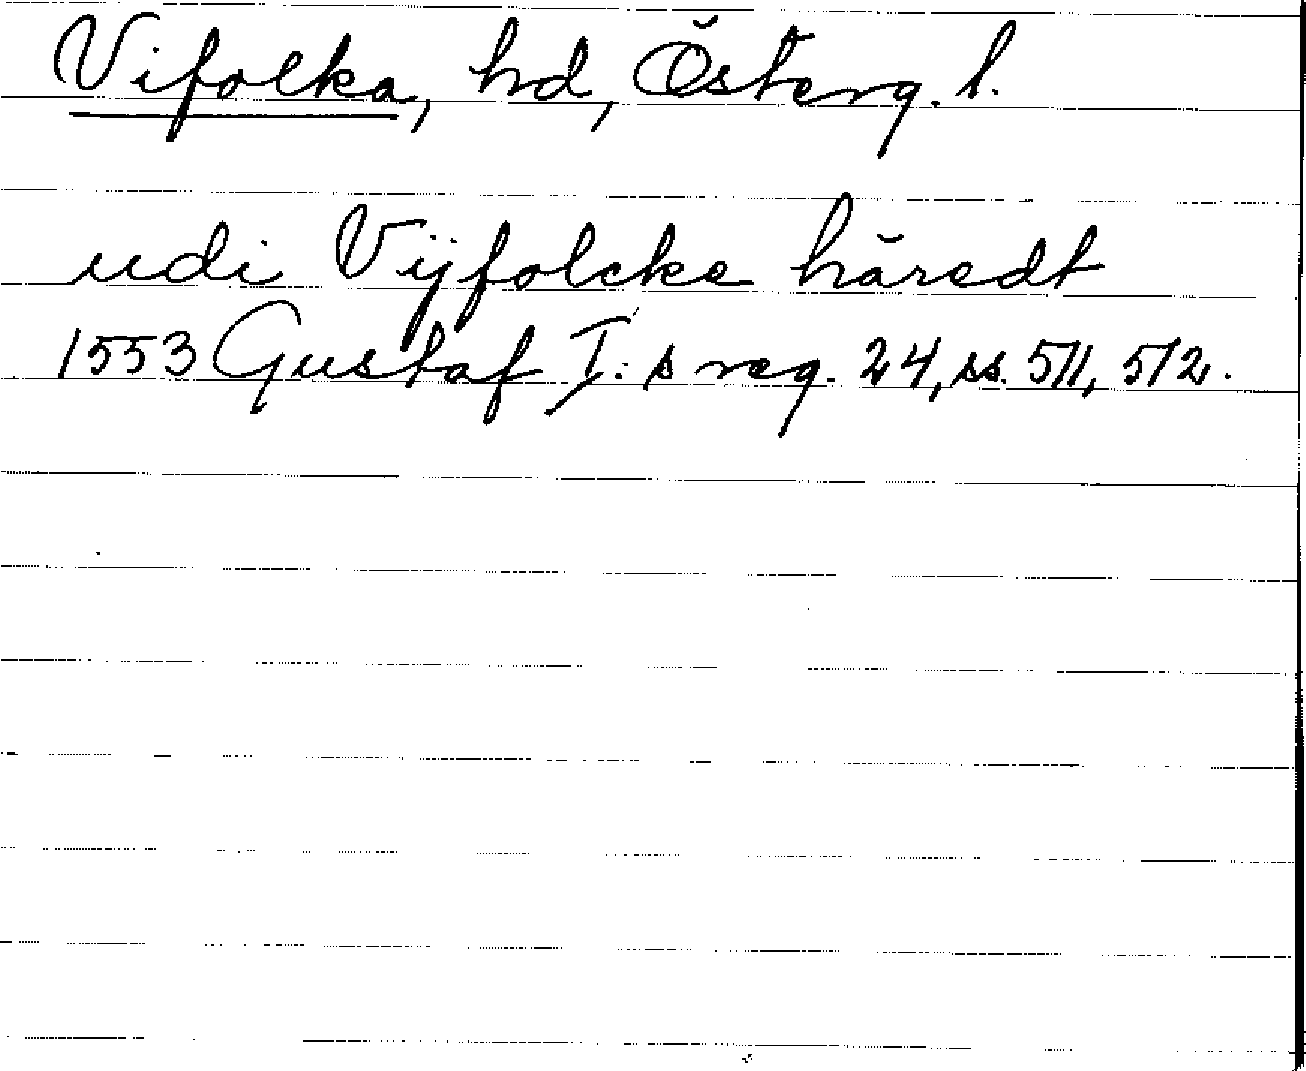 Vifolka, hd, Österg. l.
udi Vijfolcke häredt
1553 Gustaf I:s reg. 24, ss. 511, 512.